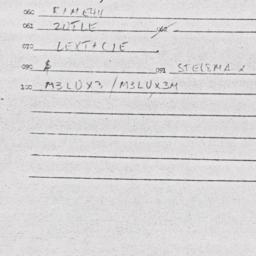 060
061 ZUTLE
070 LEXTACIE
090 $ 091 STELEMA X
100 M3LUX3 / M3LUX3M